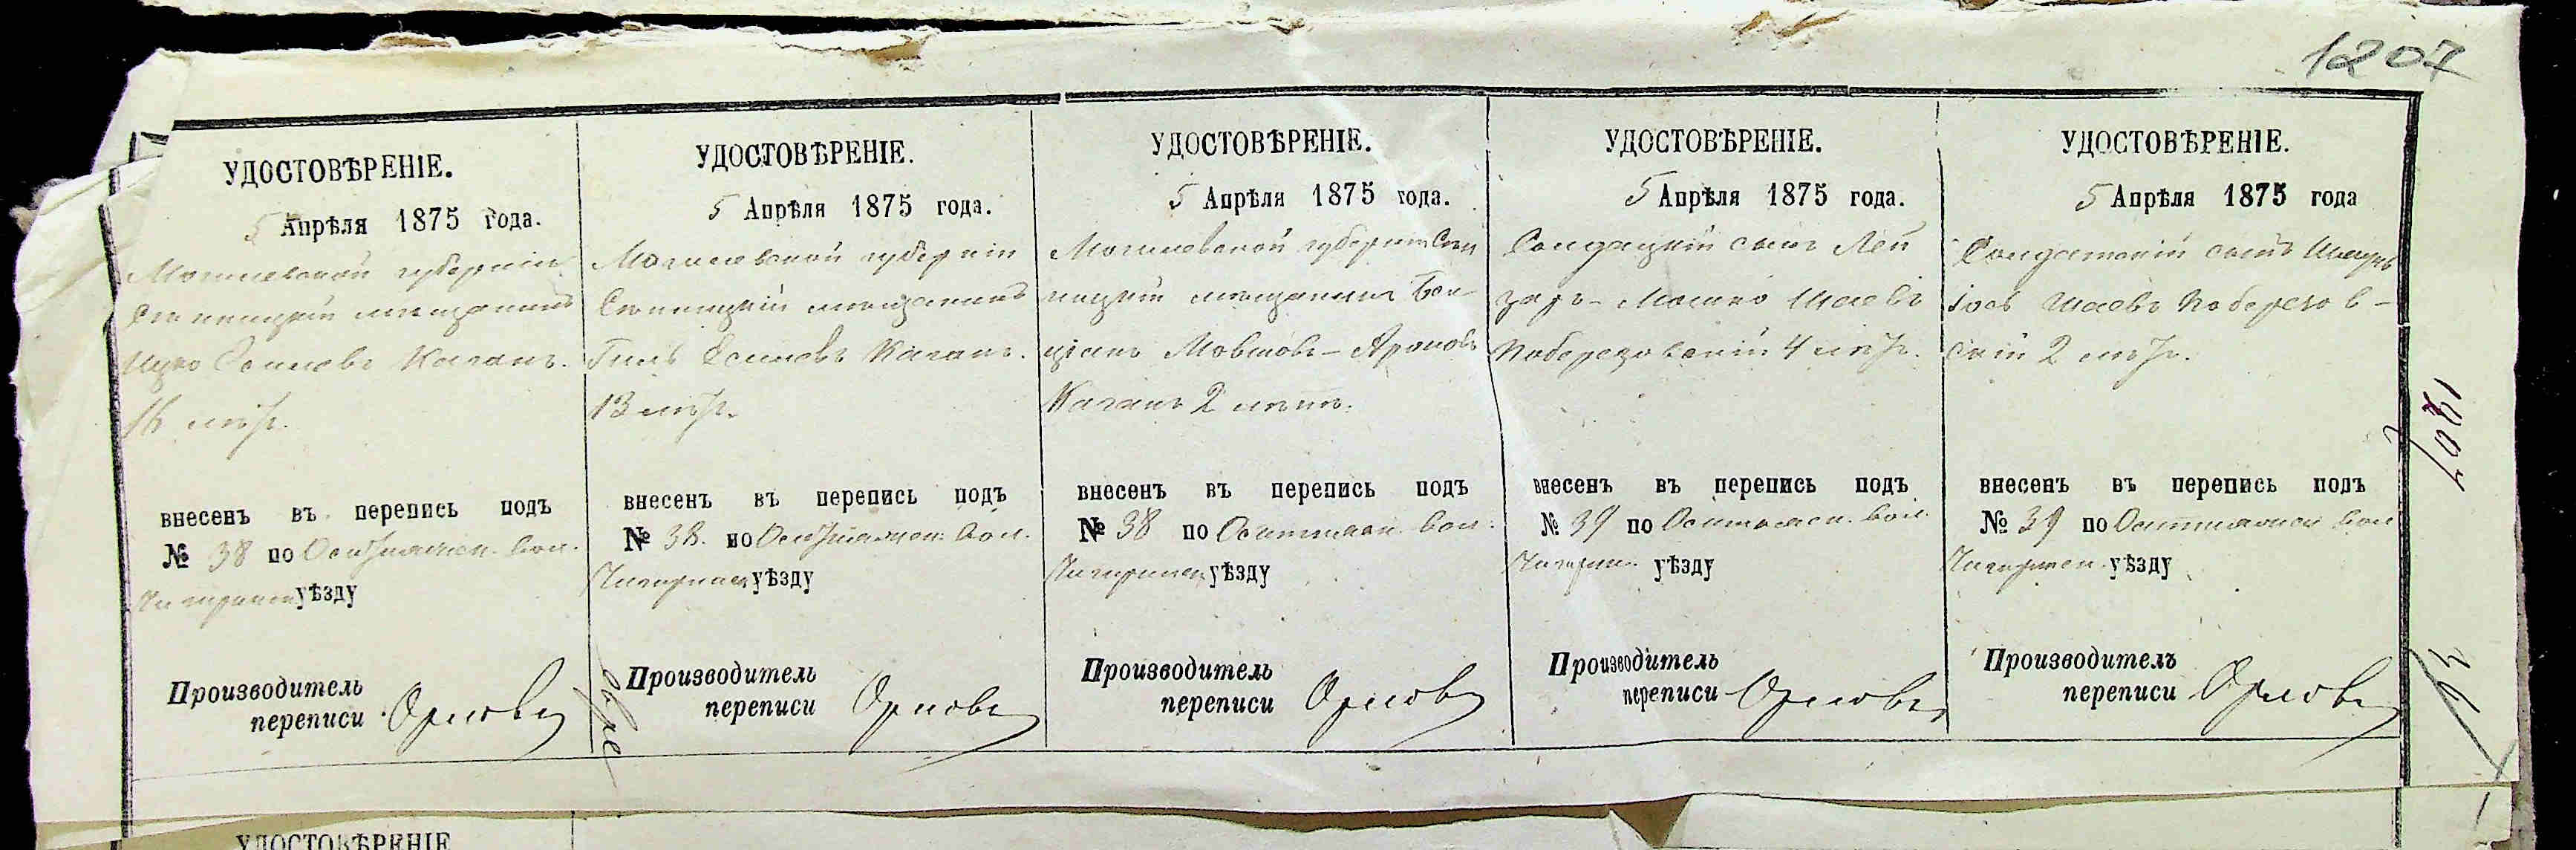 1207
УДОСТОВѢРЕНІЕ.
5 Апрѣля 1875 года.
Могилевской губерніи
мѣщанинъ
Ицко Каганъ.
16 лѣтъ.
внесенъ въ перепись подъ
№ 38 по вол.
Чигиринск уѣзду
Производитель
переписи Орловъ
УДОСТОВѢРЕНІЕ.
5 Апрѣля 1875 года.
Могилевской губерніи
мѣщанинъ
Каганъ.
13 лѣтъ.
внесенъ въ перепись подъ
№ 38. по вол.
Чигиринск уѣзду
Производитель
переписи Орловъ
УДОСТОВѢРЕНІЕ.
5 Апрѣля 1875 года.
Могилевской губерніи
мѣщанинъ Бен-
ціанъ Мовшовъ-Ароновъ
Каганъ 2 лѣтъ.
внесенъ въ перепись подъ
№ 38 по вол.
Чигиринск уѣзду
Производитель
переписи Орловъ
УДОСТОВѢРЕНІЕ.
5 Апрѣля 1875 года.
Солдацкій сынъ Лей
зоръ-Мошко Шаевъ
Поберезовскій 4 лѣтъ.
внесенъ въ перепись подъ
№ 39 по вол.
Чигирин. уѣзду
Производитель
переписи Орловъ
УДОСТОВѢРЕНІЕ.
5 Апрѣля 1875 года
Солдатскій сынъ
Іось Шаевъ Поберезов-
скій 2 лѣтъ.
внесенъ въ перепись подъ
№ 39 по вол
Чигиринск. уѣзду
Производитель
переписи Орловъ
1207
УДОСТОВѢРЕНІЕ